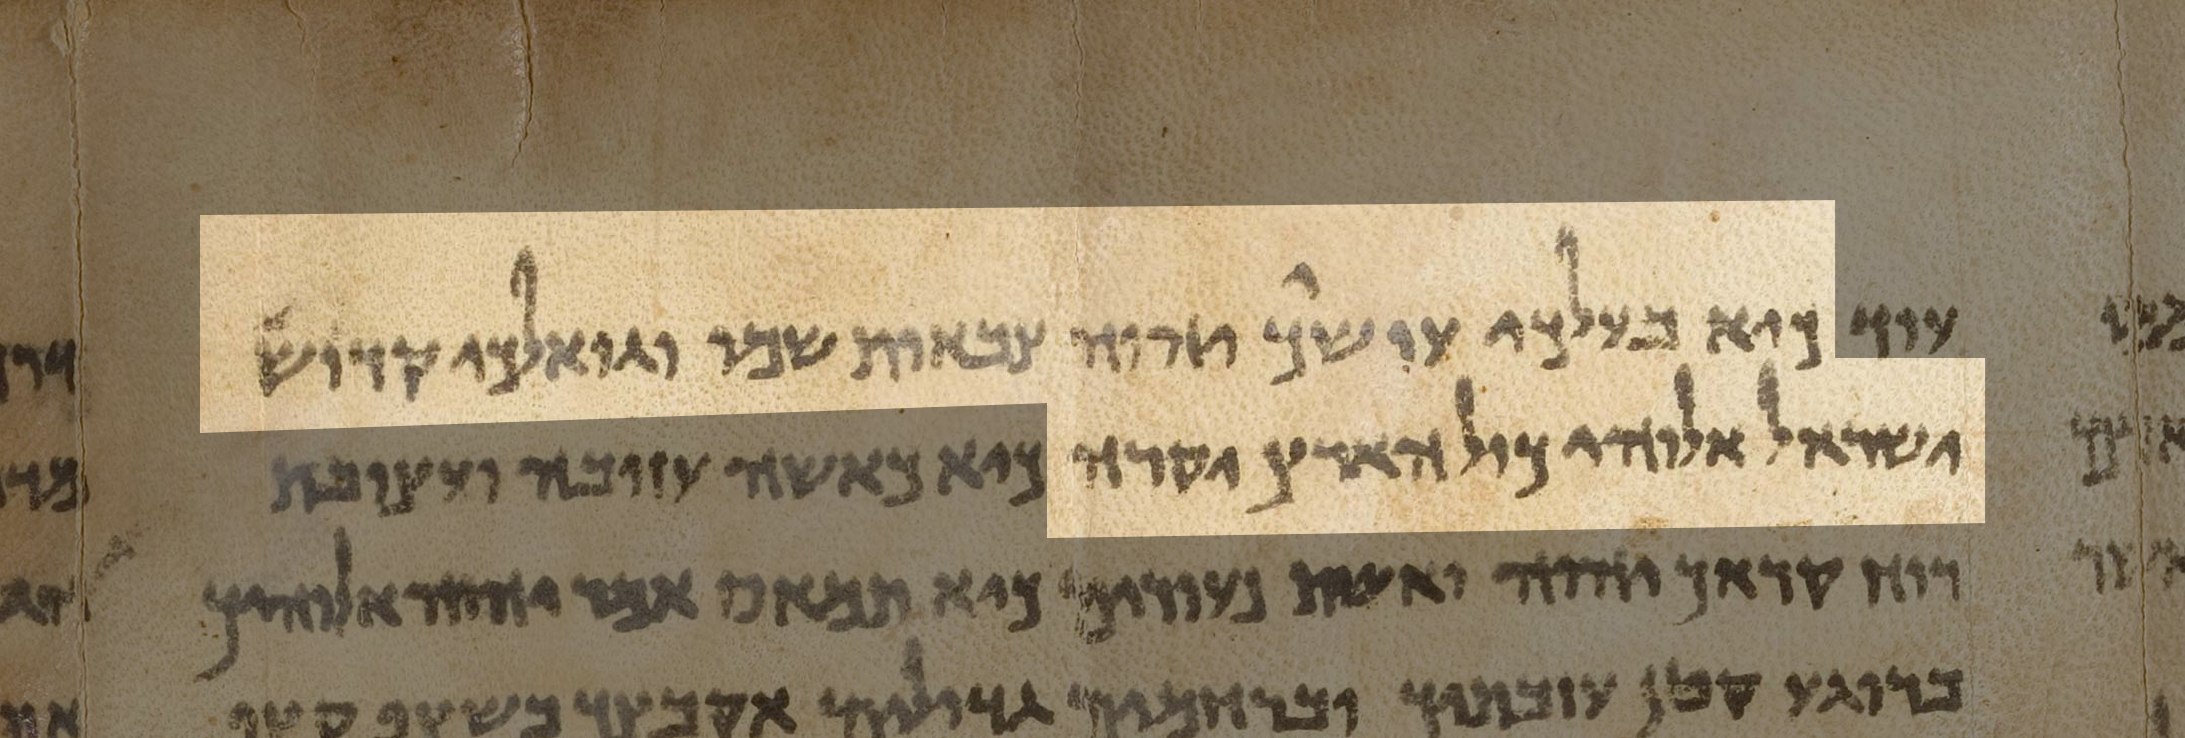 עוד כיא בעלכי עושיך יהוה צבאות שמו וגואלכי קדוש
ישראל אלוהי כול הארץ יקרה כיא כאשה עזובה ועצובת
רוח קראך יהוה ואשת נעורים כיא תמאס אמר יהוה אלוהיך
ברוגע קטן עזבתיך וברחמים גדולים אקבצך בשצף קצף